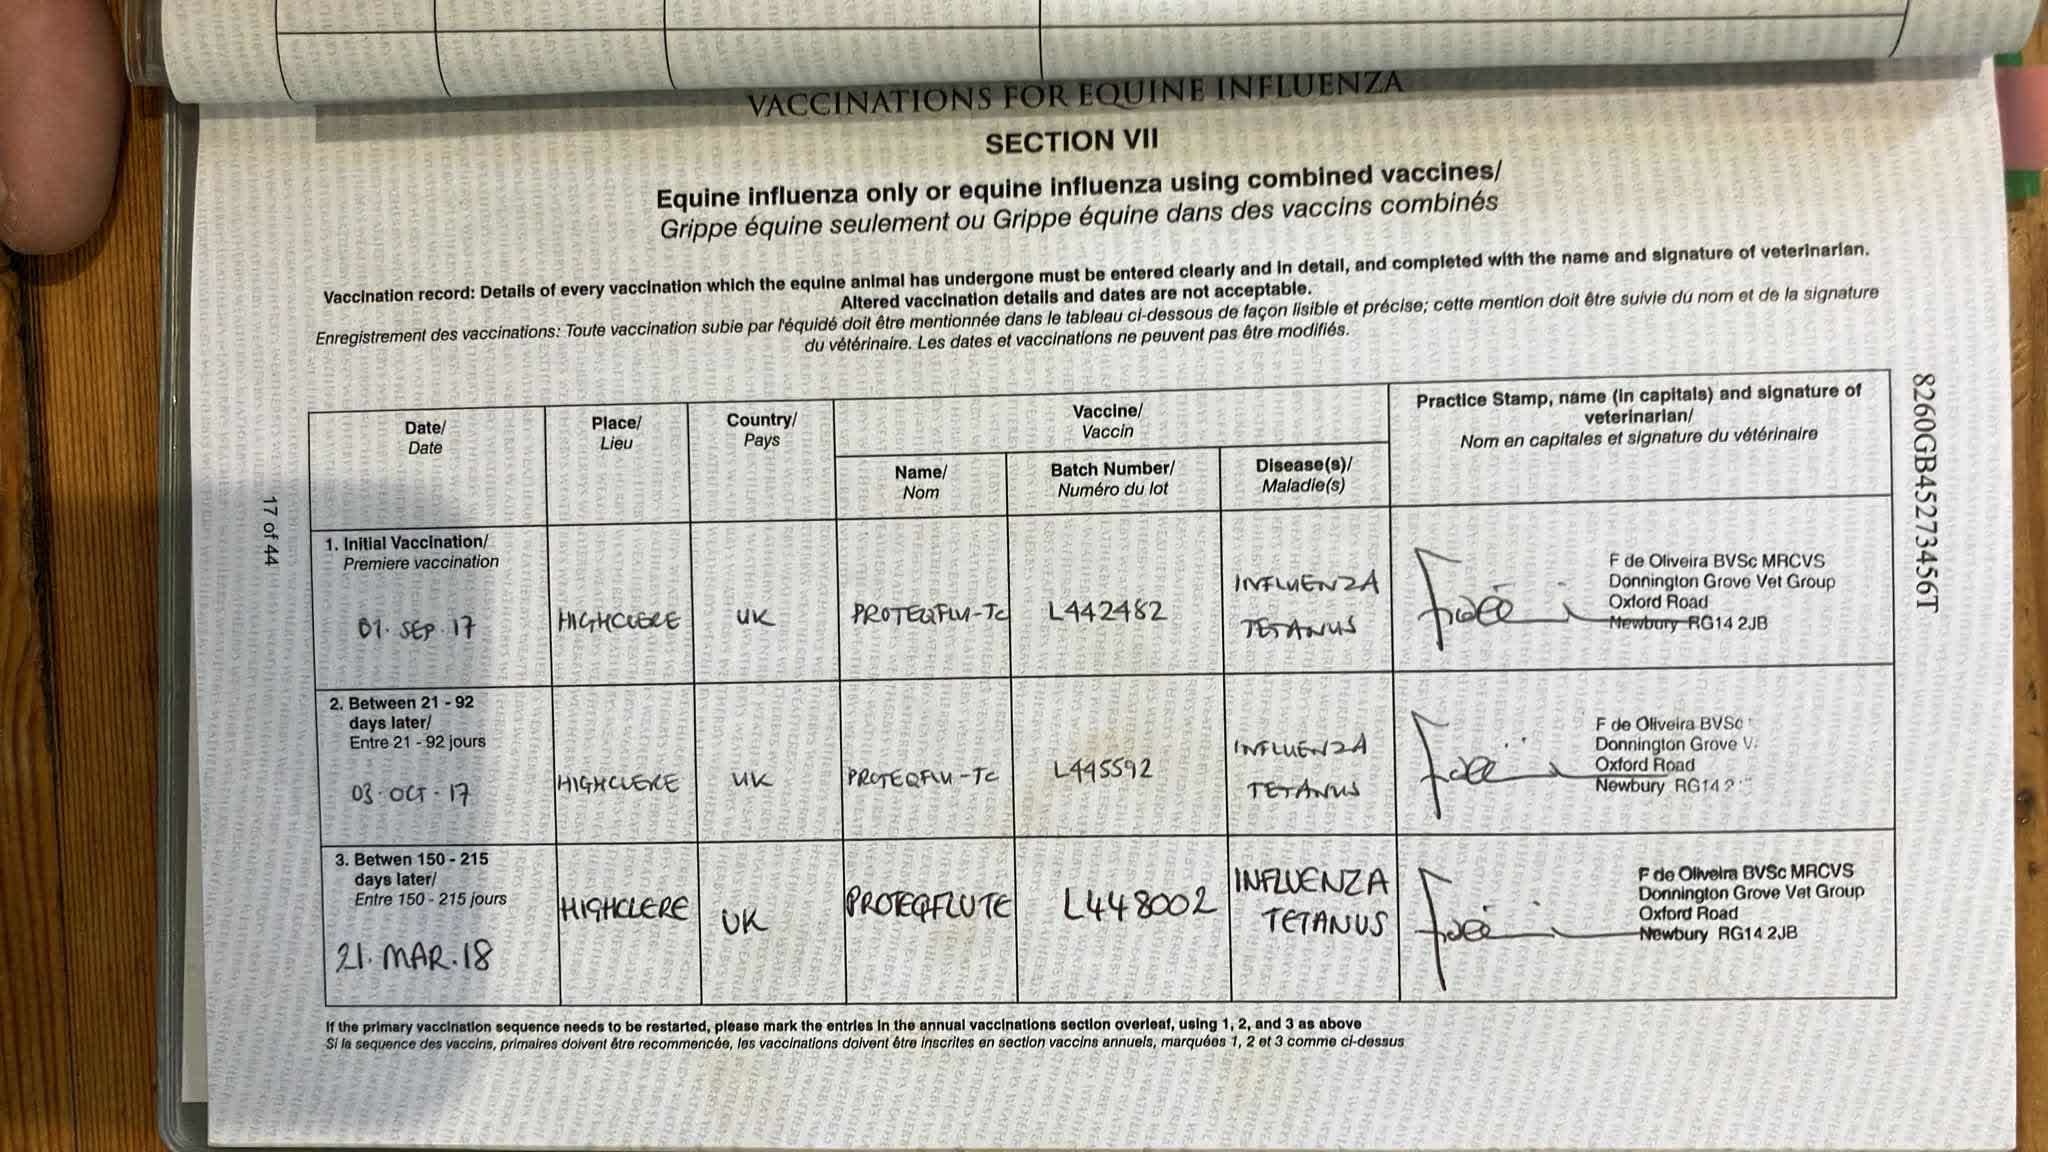 VACCINATIONS FOR EQUINE INFLUENZA
SECTION VII
Equine influenza only or equine influenza using combined vaccines/
Grippe équine seulement ou Grippe équine dans des vaccins combinés
Vaccination record: Details of every vaccination which the equine animal has undergone must be entered clearly and in detail, and completed with the name and signature of veterinarian.
Altered vaccination details and dates are not acceptable.
Enregistrement des vaccinations: Toute vaccination subie par l'équidé doit être mentionnée dans le tableau ci-dessous de façon lisible et précise; cette mention doit être suivie du nom et de la signature
du vétérinaire. Les dates et vaccinations ne peuvent pas être modifiés.
Date/
Date
Place/
Lieu
Country/
Pays
Vaccine/
Vaccin
Name/
Nom
Batch Number/
Numéro du lot
Disease(s)/
Maladie(s)
Practice Stamp, name (in capitals) and signature of
veterinarian/
Nom en capitales et signature du vétérinaire
1. Initial Vaccination/
Premiere vaccination
01. SEP. 17
HIGHCLERE
UK
PROTEQFLU-TC
L442482
INFLUENZA
TETANUS
F de Oliveira BVSc MRCVS
Donnington Grove Vet Group
Oxford Road
Newbury RG14 2JB
2. Between 21 - 92
days later/
Entre 21 - 92 jours
03. OCT. 17
HIGHCLERE
UK
PROTEQFLU-TC
L445592
INFLUENZA
TETANUS
F de Oliveira BVSc
Donnington Grove
Oxford Road
Newbury RG14
3. Betwen 150 - 215
days later/
Entre 150 - 215 jours
21. MAR. 18
HIGHCLERE
UK
PROTEQFLUTE
L448002
INFLUENZA
TETANUS
F de Oliveira BVSc MRCVS
Donnington Grove Vet Group
Oxford Road
Newbury RG14 2JB
If the primary vaccination sequence needs to be restarted, please mark the entries in the annual vaccinations section overleaf, using 1, 2, and 3 as above
Si la sequence des vaccins, primaires doivent être recommencée, les vaccinations doivent être inscrites en section vaccins annuels, marquées 1, 2 et 3 comme ci-dessus
17 of 44
8260GB45273456T